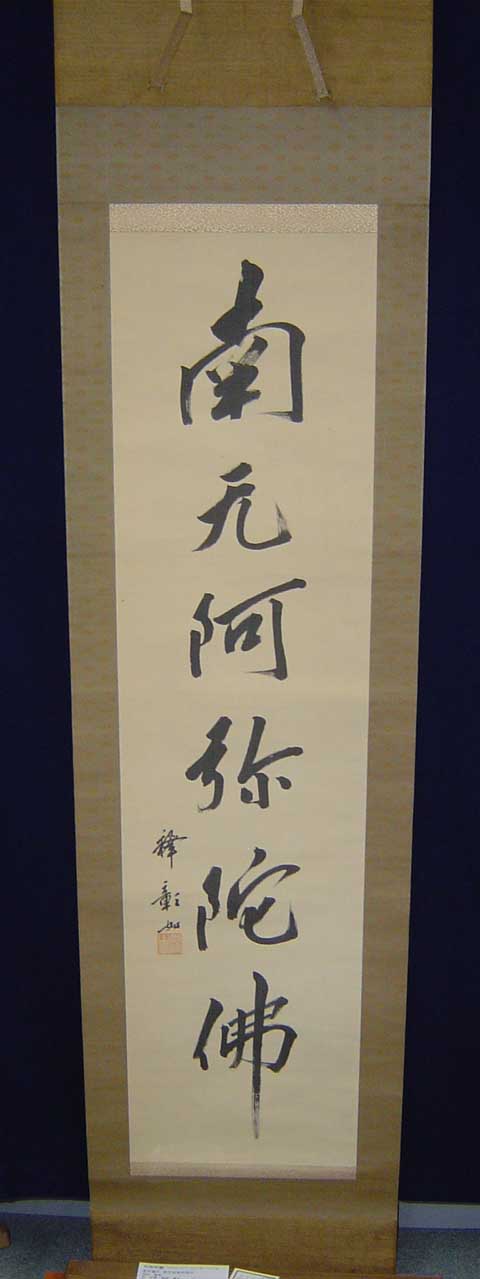 南无阿弥陀佛
釋彰如